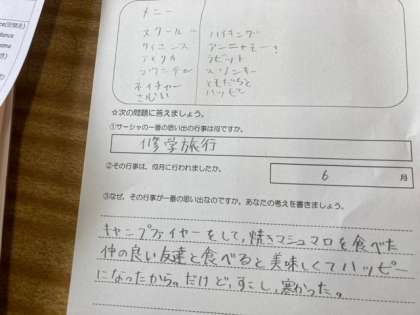 メニー
スクール
サイエンス
アメリカ
マウンテン
ネイチャー
さむい
ハイキング
ラビット
スリンキー
ともだちと
ハッピー
☆次の問題に答えましょう。
①サーシャの一番の思い出の行事は何ですか。
修学旅行
②その行事は、何月に行われましたか。
6 月
③なぜ、その行事が一番の思い出なのですか。あなたの考えを書きましょう。
キャンプファイヤーをして,焼きマシュマロを食べた
仲の良い友達と食べると美味しくてハッピー
になったから。だけど,すこし,寒かった。